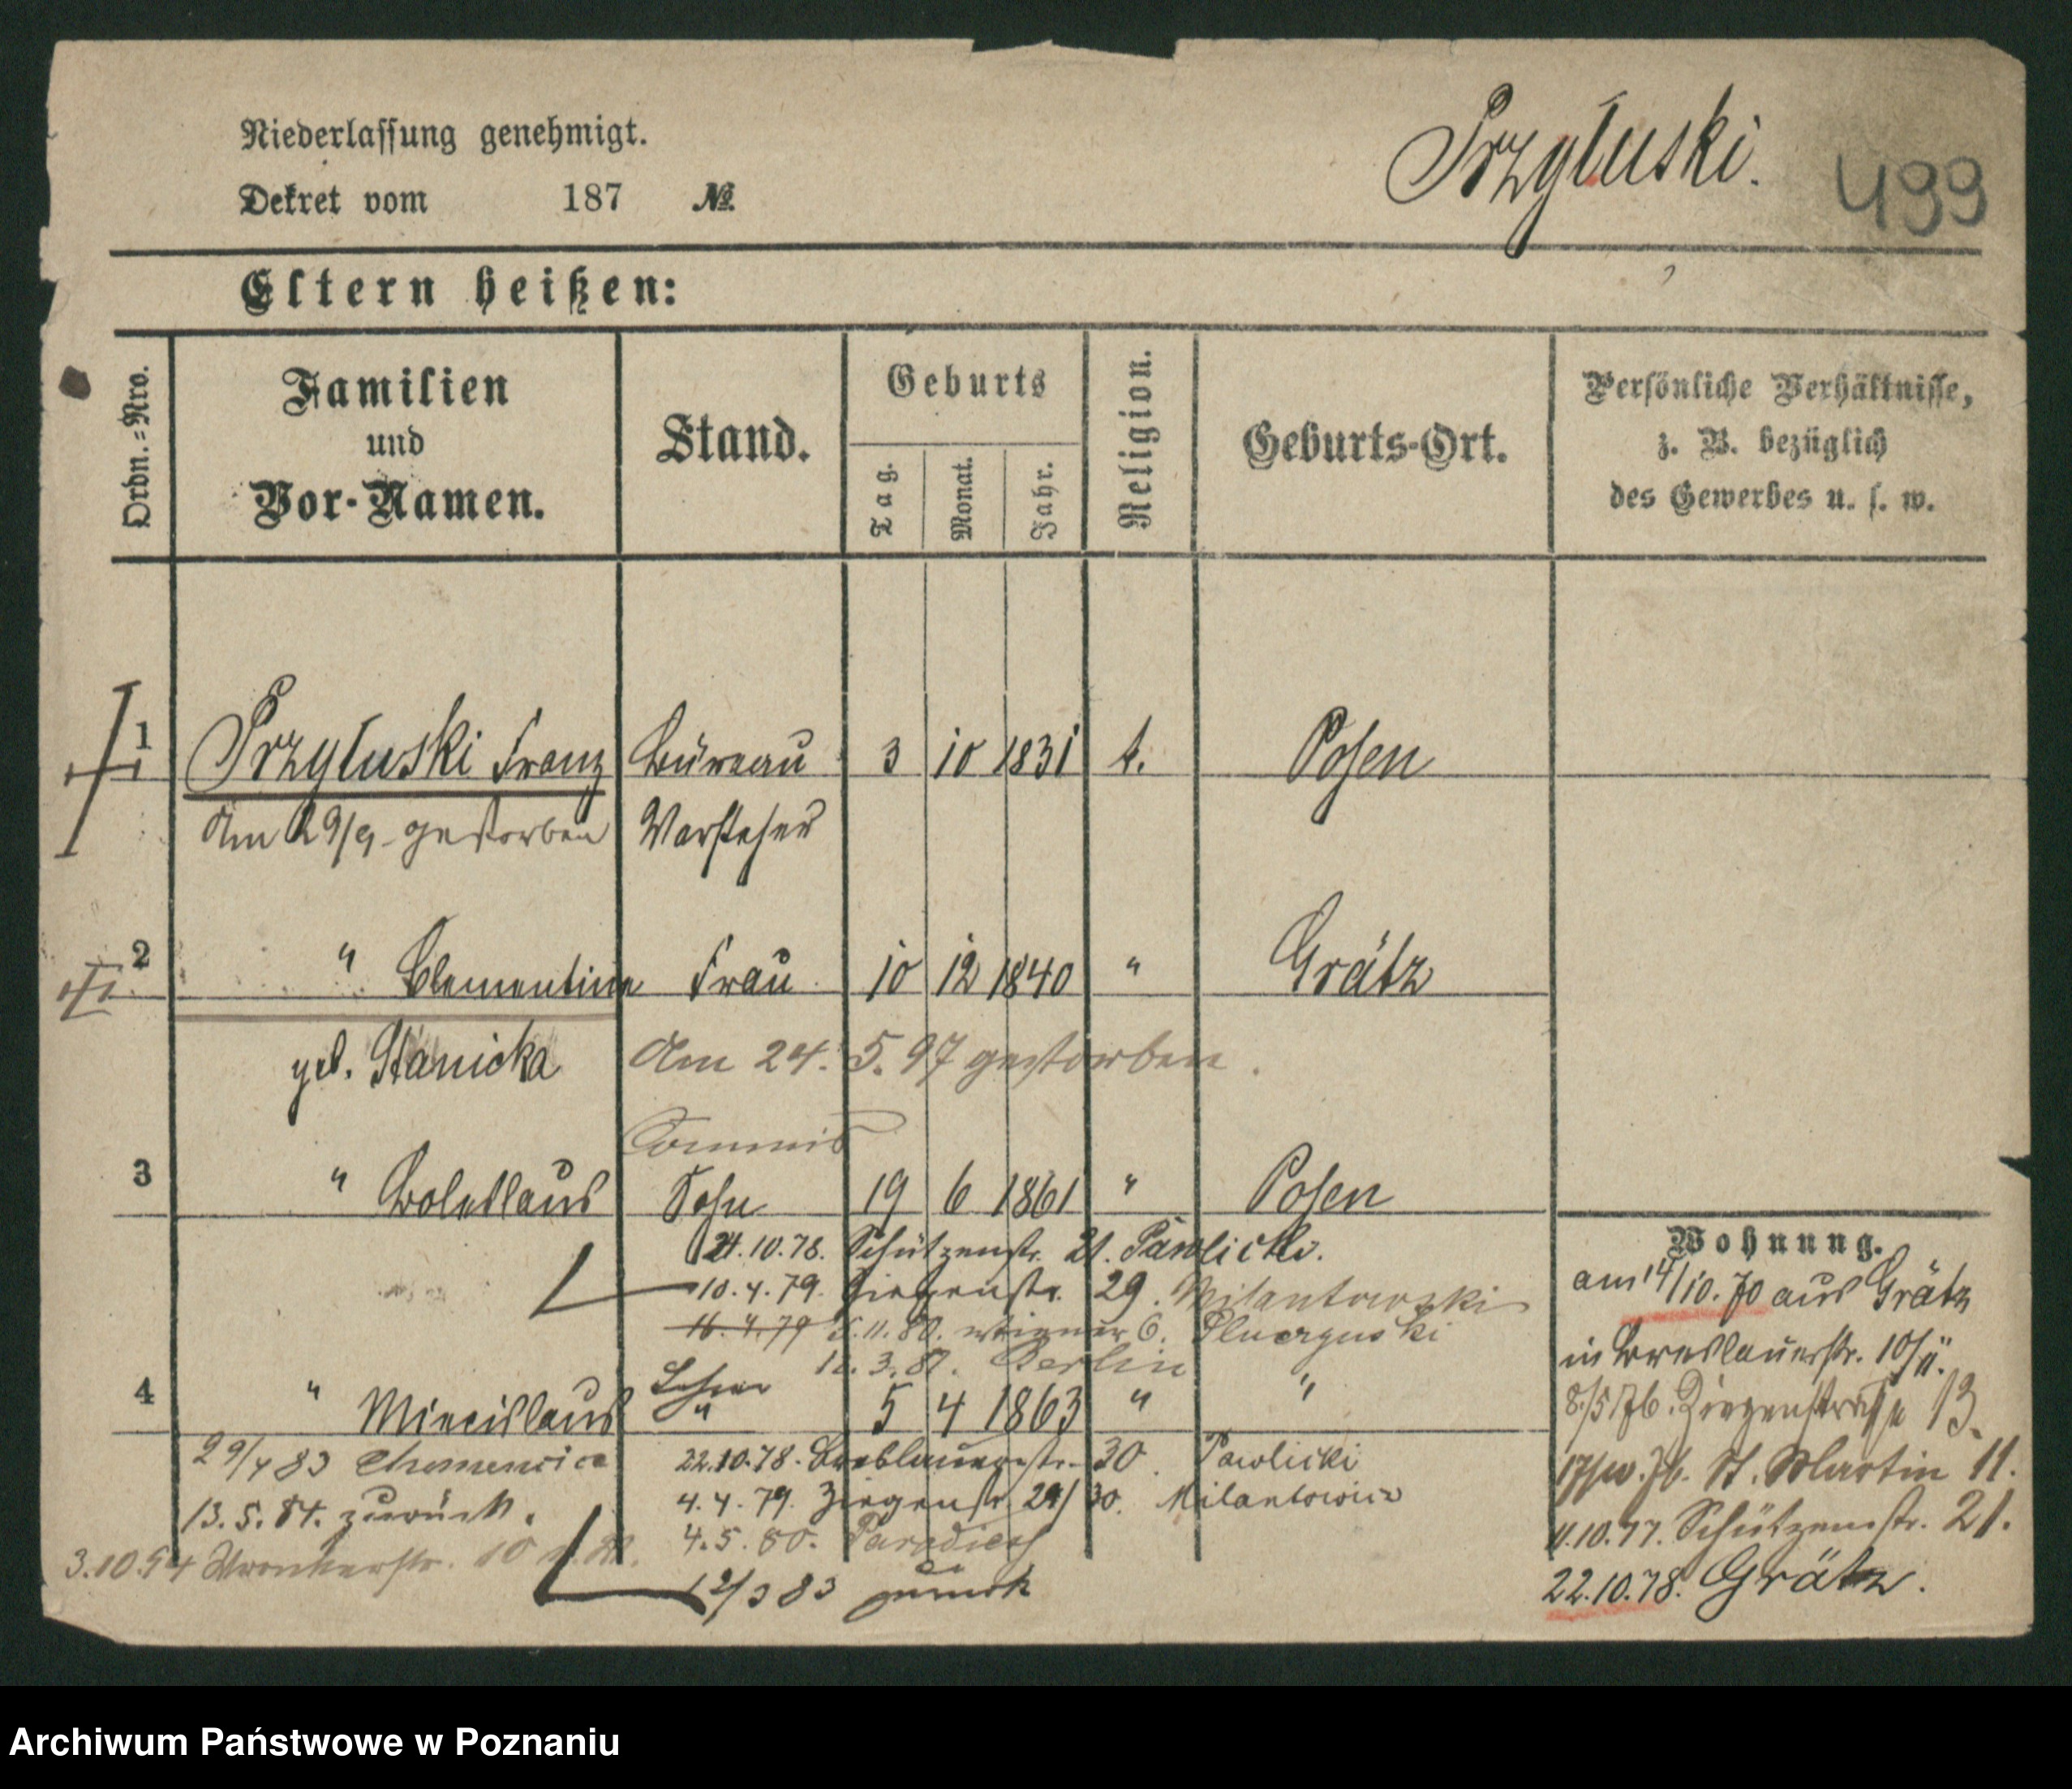 Niederlassung genehmigt.
Dekret vom 187 No.
Przyłuski. 499
Eltern heißen:
Ordn.=Nro.
Familien
und
Vor-Namen.
Stand.
Geburts
Tag.
Monat.
Jahr.
Religion.
Geburts-Ort.
Persönliche Verhältnisse,
z. B. bezüglich
des Gewerbes u. s. w.
1 Przyłuski Franz Büreau 3 10 1831 k. Posen
Am 29/9. gestorben Vorsteher
2 " Clementine Frau 10 12 1840 " Grätz
geb. Stanicka Am 24. 5. 97 gestorben.
Commis
3 " Boleslaus Sohn 19 6 1861 " Posen
21.10.78. Schützenstr. 21. Pawlicki.
10.4.79. Ziegenstr. 29. Milantowski
16.4.79 5.11.80. 6.
3. 81. Berlin
4 " Miecislaus Lehrer " 5 4 1863 " "
29/4 83
13.5.84. zurück.
3.10.84 Wronkerstr. 10
22.10.78. Breslauerstr. 30. Pawlicki
4.4.79. Ziegenstr. 29/30. Milantowicz
4.5.80. Paradies
12/3 83 zurück
Wohnung.
am 14/10. 70 aus Grätz
in Breslauerstr. 10/II.
8/5 76. Ziegenstraße 13.
17/10. 76. St. Martin 11.
11.10.77. Schützenstr. 21.
22.10.78. Grätz.
Archiwum Państwowe w Poznaniu